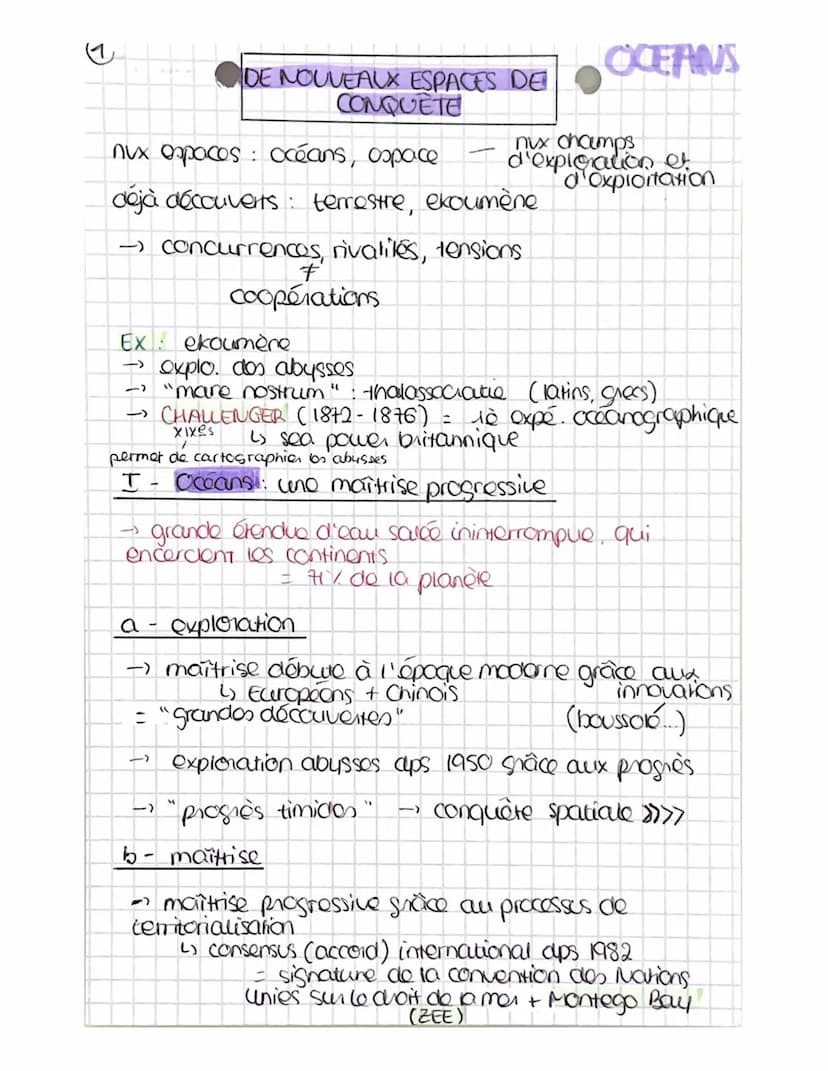 1
OCEANS
DE NOUVEAUX ESPACES DE
CONQUÊTE
nvx espaces : océans, espace — nvx champs
d'exploration et
d'exploitation
déjà découverts : terrestre, ekoumène
→ concurrences, rivalités, tensions
≠
coopérations
Ex : ekoumène
→ explo. des abysses
→ "mare nostrum" : thalassocratie (latins, grecs)
→ CHALLENGER (1872 - 1876) = 1è expé. océanographique
XIXes ↳ sea power britannique
permet de cartographier les abysses
I - Océans : une maîtrise progressive
→ grande étendue d'eau salée ininterrompue, qui
encerclent les continents
= 71% de la planète
a - exploration
→ maîtrise débute à l'époque moderne grâce aux
↳ Européens + Chinois innovations
= "grandes découvertes" (boussole...)
→ exploration abysses dps 1950 grâce aux progrès
→ "progrès timides" → conquête spatiale >>>>
b - maîtrise
→ maîtrise progressive grâce au processus de
territorialisation
↳ consensus (accord) international dps 1982
= signature de la convention des Nations
Unies sur le droit de la mer + Montego Bay
(ZEE)